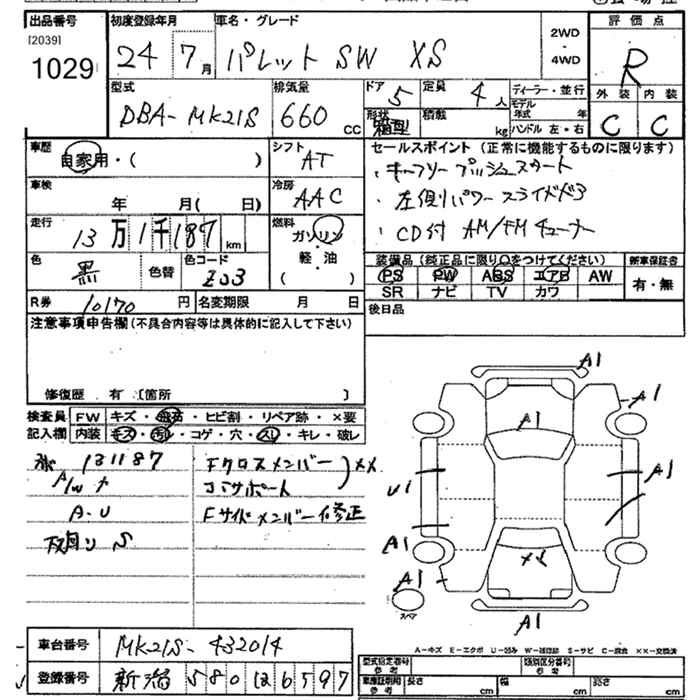 出品番号 初度登録年月 車名・グレード 評価点
[2039]
1029 24 7月 パレット SW XS 2WD・4WD R
型式 排気量 ドア 定員 ディーラー・並行 外装 内装
DBA-MK21S 660cc 5 4人 モデル年式 年 C C
形状 箱型 積載 kg ハンドル 左・右
車歴 シフト セールスポイント (正常に機能するものに限ります)
自家用・( ) AT ・キーフリー プッシュスタート
車検 冷房 ・左側パワースライドドア
年 月( 日) AAC ・CD付 AM/FMチューナー
走行 燃料
13万1千187km ガソリン・軽・油 ( )
色 色替 色コード 装備品 (純正品に限り○をつけてください) 新車保証書
黒 ZJ3 PS PW ABS エアB AW 有・無
SR ナビ TV カワ
R券 10170円 名変期限 月 日 後日品
注意事項申告欄(不具合内容等は具体的に記入して下さい)
修復歴 有 〔箇所 〕
検査員 FW キズ・飛石・ヒビ割・リペア跡・×要
記入欄 内装 キズ・汚れ・コゲ・穴・スレ・キレ・破レ
131187 Fクロスメンバー ××
A/Wキ コアサポート
A-U Fサイドメンバー修正
下回り S
A1
A1
A1
A1
U1
A1
A1
A1
スペア
A1
車台番号 MK21S-432014
登録番号 新潟 580 い 6597
A-キズ E-エクボ U-凹み W-補修跡 S-サビ C-腐食 ××-交換済
型式指定番号 参考 類別区分番号 参考
車両諸元 参考 長さ cm 幅 cm 高さ cm